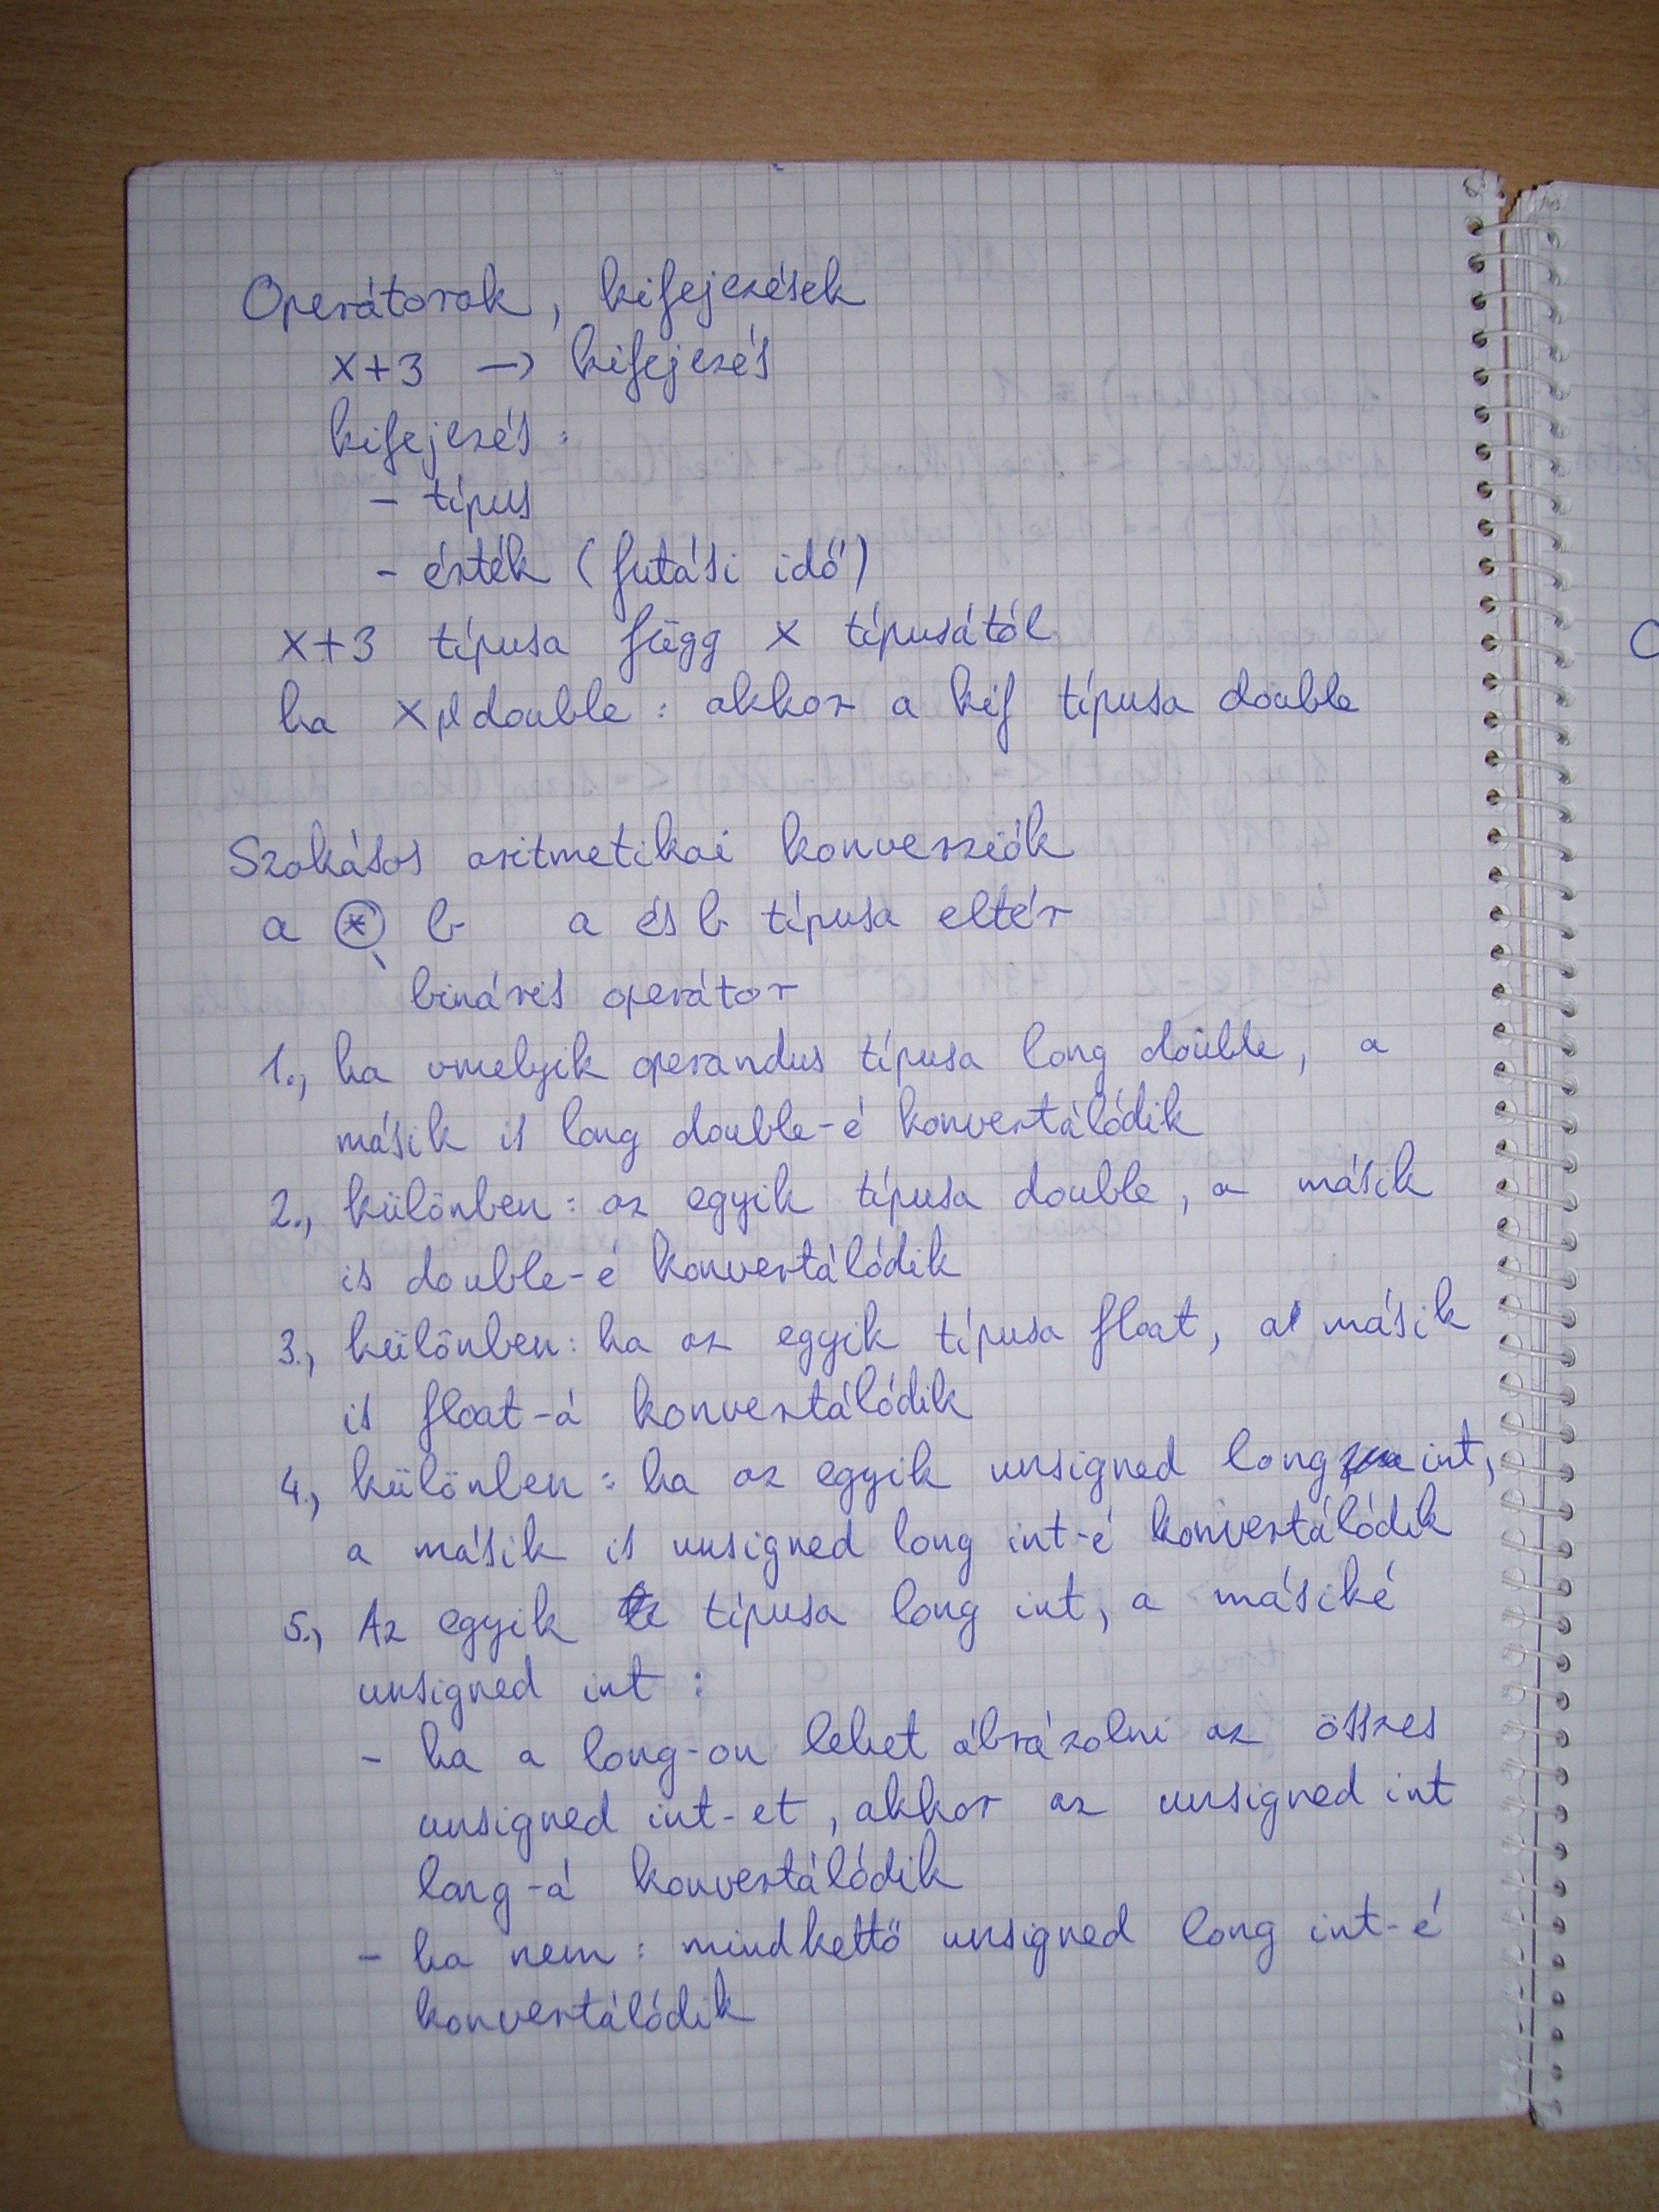 Operátorok, kifejezések
x+3 → kifejezés
kifejezés:
- típus
- érték (futási idő)
x+3 típusa függ x típusától
ha x double: akkor a kif típusa double
Szokásos aritmetikai konverziók
a * b a és b típusa eltér
bináris operátor
1., ha vmelyik operandus típusa long double, a
másik is long double-é konvertálódik
2., különben: az egyik típusa double, a másik
is double-é konvertálódik
3., különben: ha az egyik típusa float, a másik
is float-á konvertálódik
4., különben: ha az egyik unsigned long int,
a másik is unsigned long int-é konvertálódik
5., Az egyik típusa long int, a másiké
unsigned int:
- ha a long-on lehet ábrázolni az összes
unsigned int-et, akkor az unsigned int
long-á konvertálódik
- ha nem: mindkettő unsigned long int-é
konvertálódik